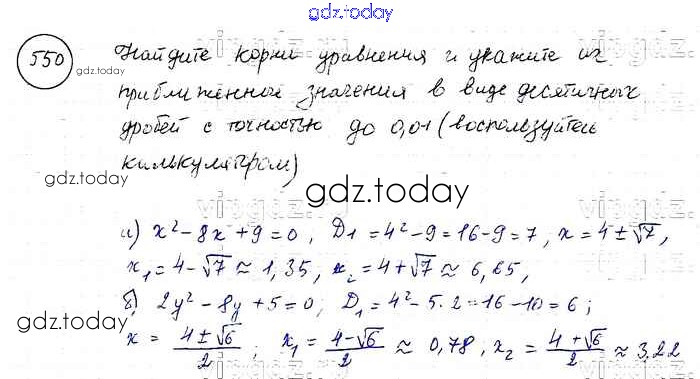 gdz.today
550
Найдите корни уравнения и укажите их
gdz.today
приближенные значения в виде десятичных
дробей с точностью до 0,01 (воспользуйтесь
калькулятром)
gdz.today
gdz.today
а) x² - 8x + 9 = 0 ; D₁ = 4² - 9 = 16 - 9 = 7, x = 4 ± √7,
x₁ = 4 - √7 ≈ 1,35, x₂ = 4 + √7 ≈ 6,65,
б) 2y² - 8y + 5 = 0; D₁ = 4² - 5 · 2 = 16 - 10 = 6 ;
gdz.today
x = (4 ± √6)/2 ; x₁ = (4 - √6)/2 ≈ 0,78, x₂ = (4 + √6)/2 ≈ 3,22